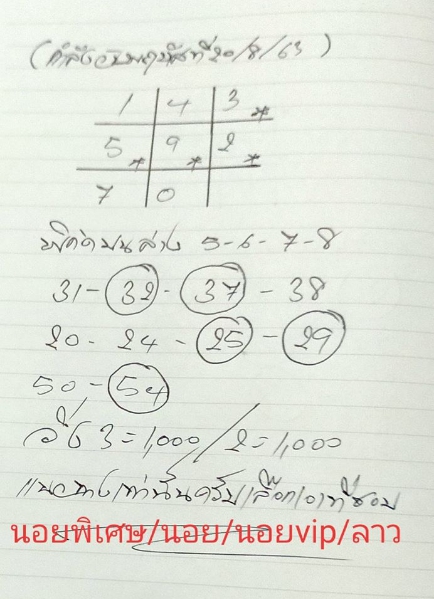 (กำลังวันพฤหัสที่20/8/63)
1 4 3*
5* 9* 2*
7 0
พิกัดบนล่าง 5-6-7-8
31-32-37-38
20-24-25-29
50-54
วิ่ง 3=1,000/2=1,000
แนวทางเท่านั้นครับ/เลือกเอาที่ชอบ
นอยพิเศษ/นอย/นอยvip/ลาว